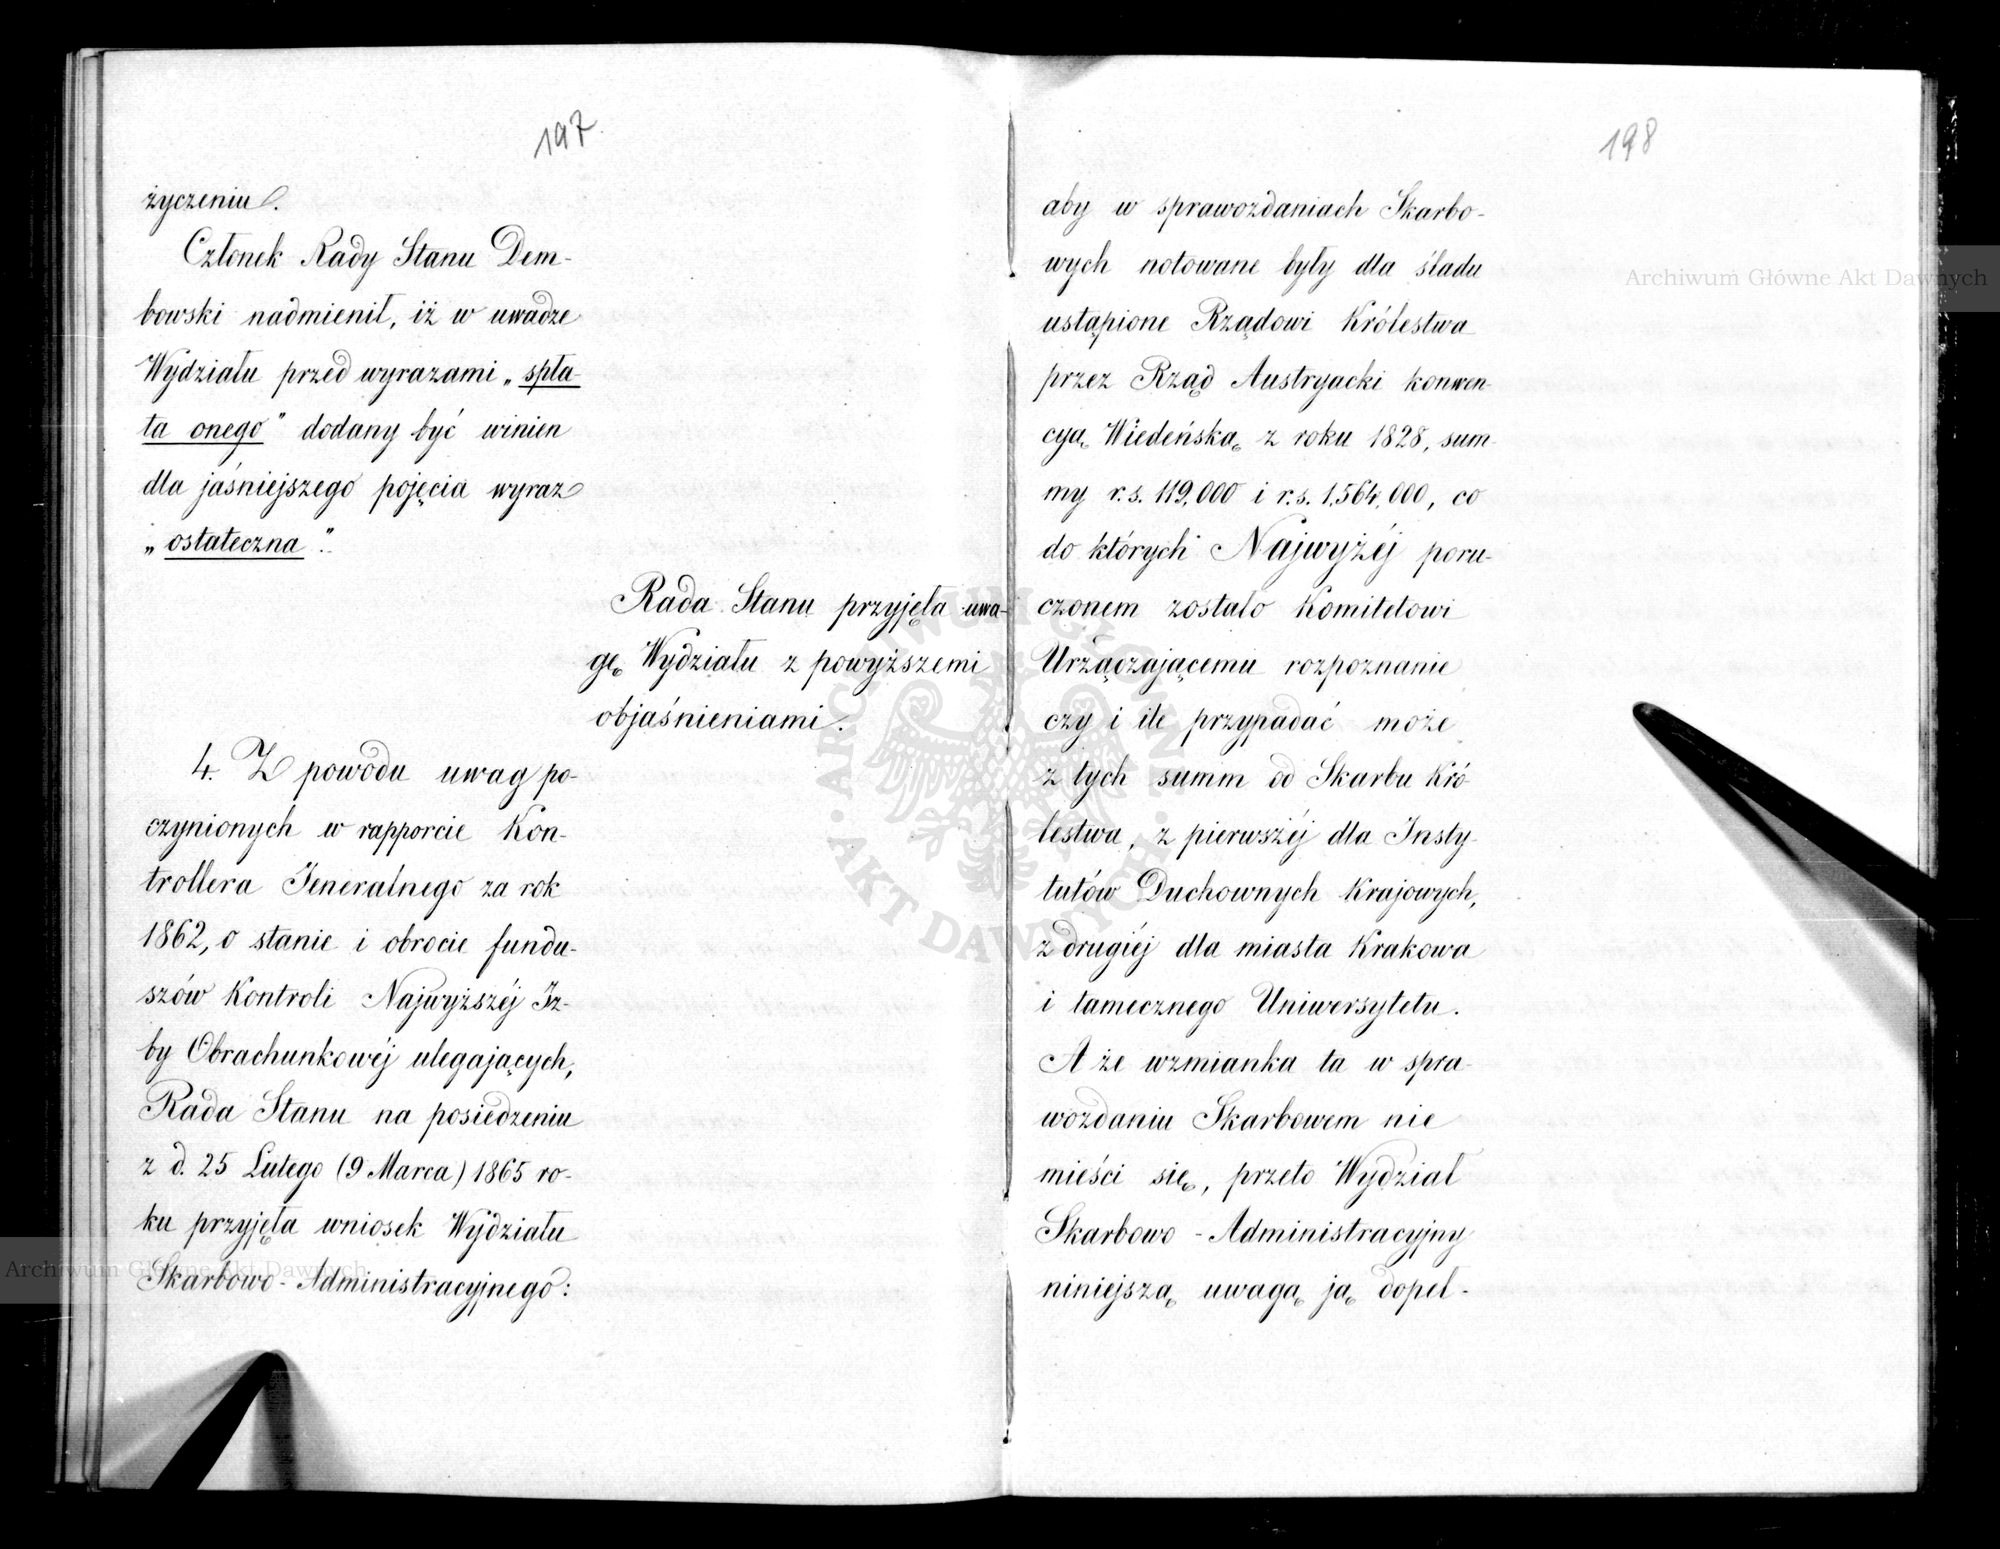 197
życzeniu.
Członek Rady Stanu Dem-
bowski nadmienił, iż w uwadze
Wydziału przed wyrazami „spła-
ta onego" dodany być winien
dla jaśniejszego pojęcia wyraz
„ostateczna".
Rada Stanu przyjęła uwa-
gę Wydziału z powyższemi
objaśnieniami.
4. Z powodu uwag po-
czynionych w rapporcie Kon-
trollera Jeneralnego za rok
1862, o stanie i obrocie fundu-
szów Kontroli Najwyższéj Iz-
by Obrachunkowéj ulegających,
Rada Stanu na posiedzeniu
z d. 25 Lutego (9 Marca) 1865 ro-
ku przyjęła wniosek Wydziału
Skarbowo-Administracyjnego:
198
aby w sprawozdaniach Skarbo-
wych notowane były dla śladu
ustąpione Rządowi Królestwa
przez Rząd Austryacki konwen-
cyą Wiedeńską z roku 1828, sum-
my r.s. 119,000 i r.s. 1,564,000, co
do których Najwyżéj poru-
czonem zostało Komitetowi
Urządzającemu rozpoznanie
czy i ile przypadać może
z tych summ od Skarbu Kró-
lestwa, z pierwszéj dla Insty-
tutów Duchownych Krajowych,
z drugiéj dla miasta Krakowa
i tamecznego Uniwersytetu.
A że wzmianka ta w spra-
wozdaniu Skarbowem nie
mieści się, przeto Wydział
Skarbowo-Administracyjny
niniejszą uwagą ją dopeł-
Archiwum Główne Akt Dawnych
Archiwum Główne Akt Dawnych
ARCHIWUM GŁÓWNE · AKT DAWNYCH ·